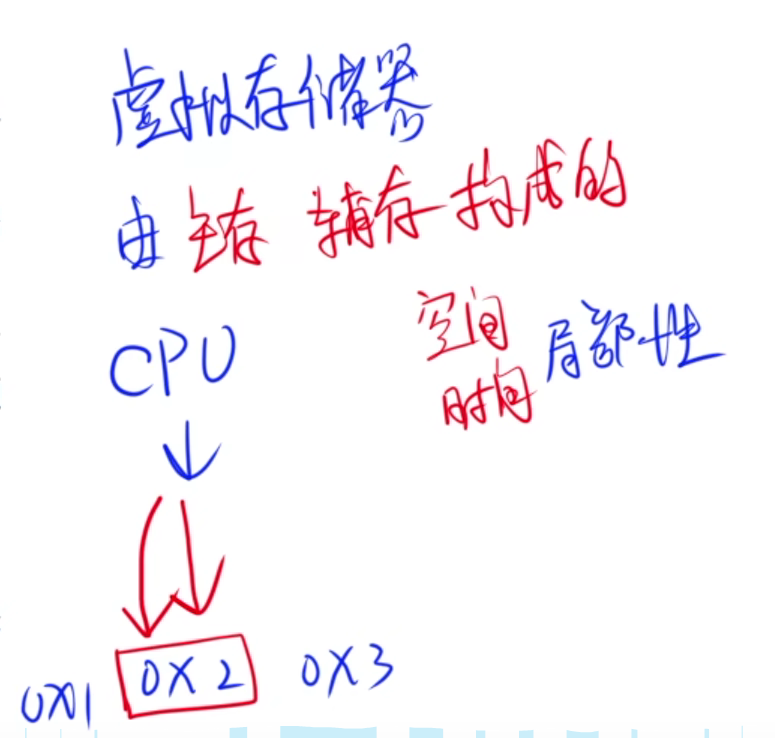 虚拟存储器
由 主存 辅存构成的
CPU
空间
时间
局部性
0X1 0X2 0X3